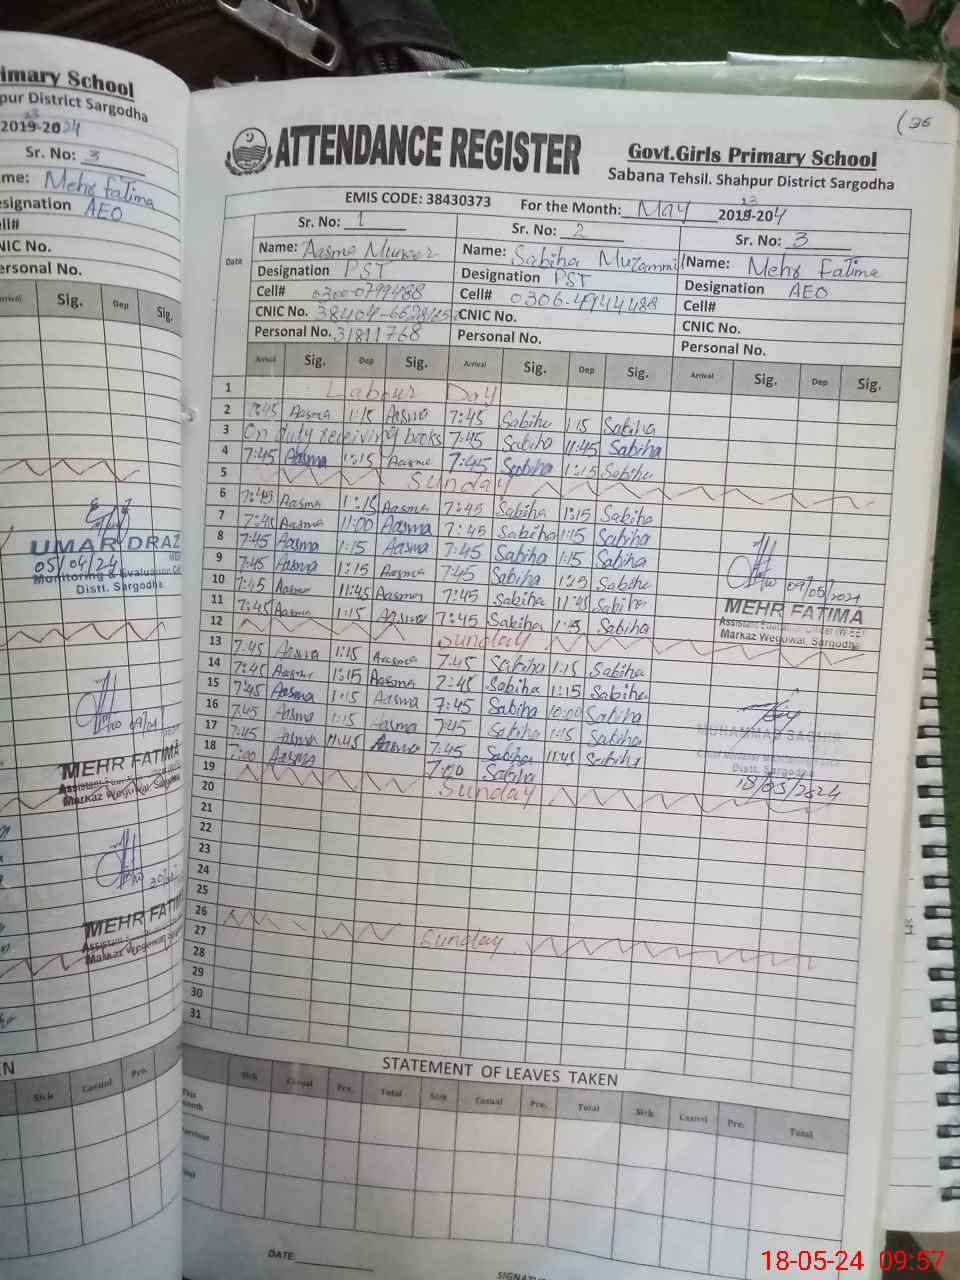 imary School
pur District Sargodha
2019-2024
23
Sr. No: 3
me: Mehr fatima
esignation AEO
ll#
NIC No.
ersonal No.
Arrival Sig. Dep Sig.
UMAR DRAZ
05/04/24
Monitoring & Evaluation
Distt. Sargodha.
MEHR FATIMA
Markaz Wegowal Sargo
MEHR FATI
Markaz Wegowal
Sick Casual Pre.
(36
ATTENDANCE REGISTER
Govt.Girls Primary School
Sabana Tehsil. Shahpur District Sargodha
EMIS CODE: 38430373 For the Month: May 2019-204
23
Date
Sr. No: 1 Sr. No: 2 Sr. No: 3
Name: Aasma Muneer Name: Sabiha Muzammil Name: Mehr Fatima
Designation PST Designation PST Designation AEO
Cell# 0300-0799488 Cell# 0306-4944488 Cell#
CNIC No. CNIC No. CNIC No.
Personal No. 31811768 Personal No. Personal No.
Arrival Sig. Dep Sig. Arrival Sig. Dep Sig. Arrival Sig. Dep Sig.
1 Labour Day
2 7:45 Aasma 1:15 Aasma 7:45 Sabiha 1:15 Sabiha
3 On duty receiving books 7:45 Sabiha 11:45 Sabiha
4 7:45 Aasma 1:15 Aasma 7:45 Sabiha 1:15 Sabiha
5 Sunday
6 7:45 Aasma 1:15 Aasma 7:45 Sabiha 1:15 Sabiha
7 7:45 Aasma 11:00 Aasma 7:45 Sabiha 1:15 Sabiha
8 7:45 Aasma 1:15 Aasma 7:45 Sabiha 1:15 Sabiha
9 7:45 Aasma 1:15 Aasma 7:45 Sabiha 1:15 Sabiha
10 7:45 Aasma 11:45 Aasma 7:45 Sabiha 11:45 Sabiha
11 7:45 Aasma 1:15 Aasma 7:45 Sabiha 1:15 Sabiha
12 Sunday
13 7:45 Aasma 1:15 Aasma 7:45 Sabiha 1:15 Sabiha
14 7:45 Aasma 1:15 Aasma 7:45 Sabiha 1:15 Sabiha
15 7:45 Aasma 1:15 Aasma 7:45 Sabiha 10:00 Sabiha
16 7:45 Aasma 1:15 Aasma 7:45 Sabiha 1:15 Sabiha
17 7:45 Aasma 11:45 Aasma 7:45 Sabiha 11:45 Sabiha
18 7:00 Aasma 7:00 Sabiha
19 Sunday
20
21
22
23
24
25
26 Sunday
27
28
29
30
31
MEHR FATIMA
Markaz Wegowal, Sargodha
Distt. Sargodha
18/05/2024
STATEMENT OF LEAVES TAKEN
Sick Casual Pre. Total Sick Casual Pre. Total Sick Casual Pre. Total
This
month
DATE:
18-05-24 09:57